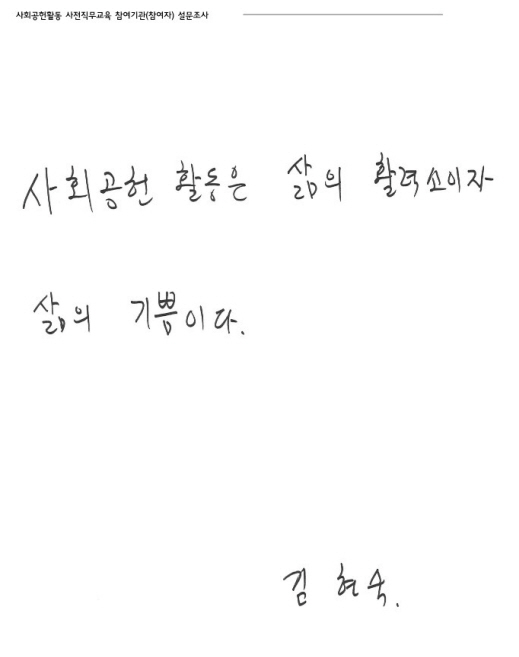 사회공헌활동 사전직무교육 참여기관(참여자) 설문조사
사회공헌 활동은 삶의 활력소이자
삶의 기쁨이다.
김현숙.